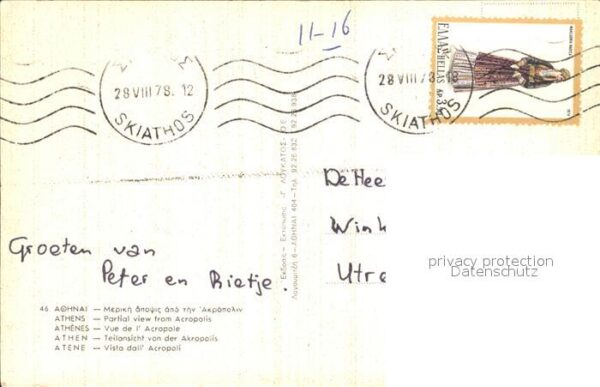 11-16
28 VIII 78. 12
SKIATHOS
28 VIII 78. 12
SKIATHOS
ΕΛΛΑΣ HELLAS
De Hee
Win
Utre
privacy protection
Datenschutz
Groeten van
Peter en Rietje.
46 ΑΘΗΝΑΙ — Μερική ἄποψις ἀπό τήν Ἀκρόπολιν
ATHENS — Partial view from Acropolis
ATHÈNES — Vue de l' Acropole
ATHEN — Teilansicht von der Akropolis
ATENE — Vista dall' Acropoli